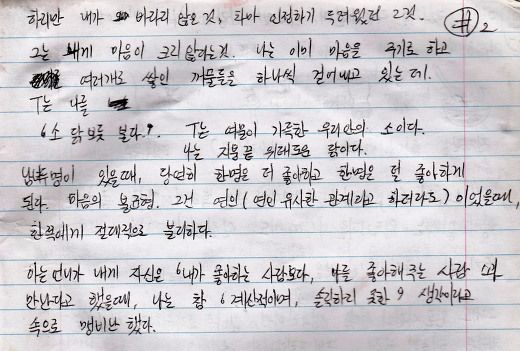 하지만 내가 바라지 않은 것, 차마 인정하기 두려웠던 그것.
#2
그는 내게 마음이 크지 않다는 것. 나는 이미 마음을 주기로 하고
여러개로 쌓인 꺼풀들을 하나씩 걷어내고 있는데.
T는 나를
'소 닭보듯 본다'. T는 여물이 가득한 우리안의 소이다.
나는 지붕 끝 위태로운 닭이다.
남녀 두명이 있을때, 당연히 한명은 더 좋아하고 한명은 덜 좋아하게
된다. 마음의 불균형. 그건 연인(연인 유사한 관계라고 하더라도) 이었을때,
한쪽에게 절대적으로 불리하다.
아는 언니가 내게 자신은 '내가 좋아하는 사람보다, 나를 좋아해주는 사람'과
만난다고 했을때, 나는 참 '계산적이며, 솔직하지 못한' 생각이라고
속으로 맹비난 했다.